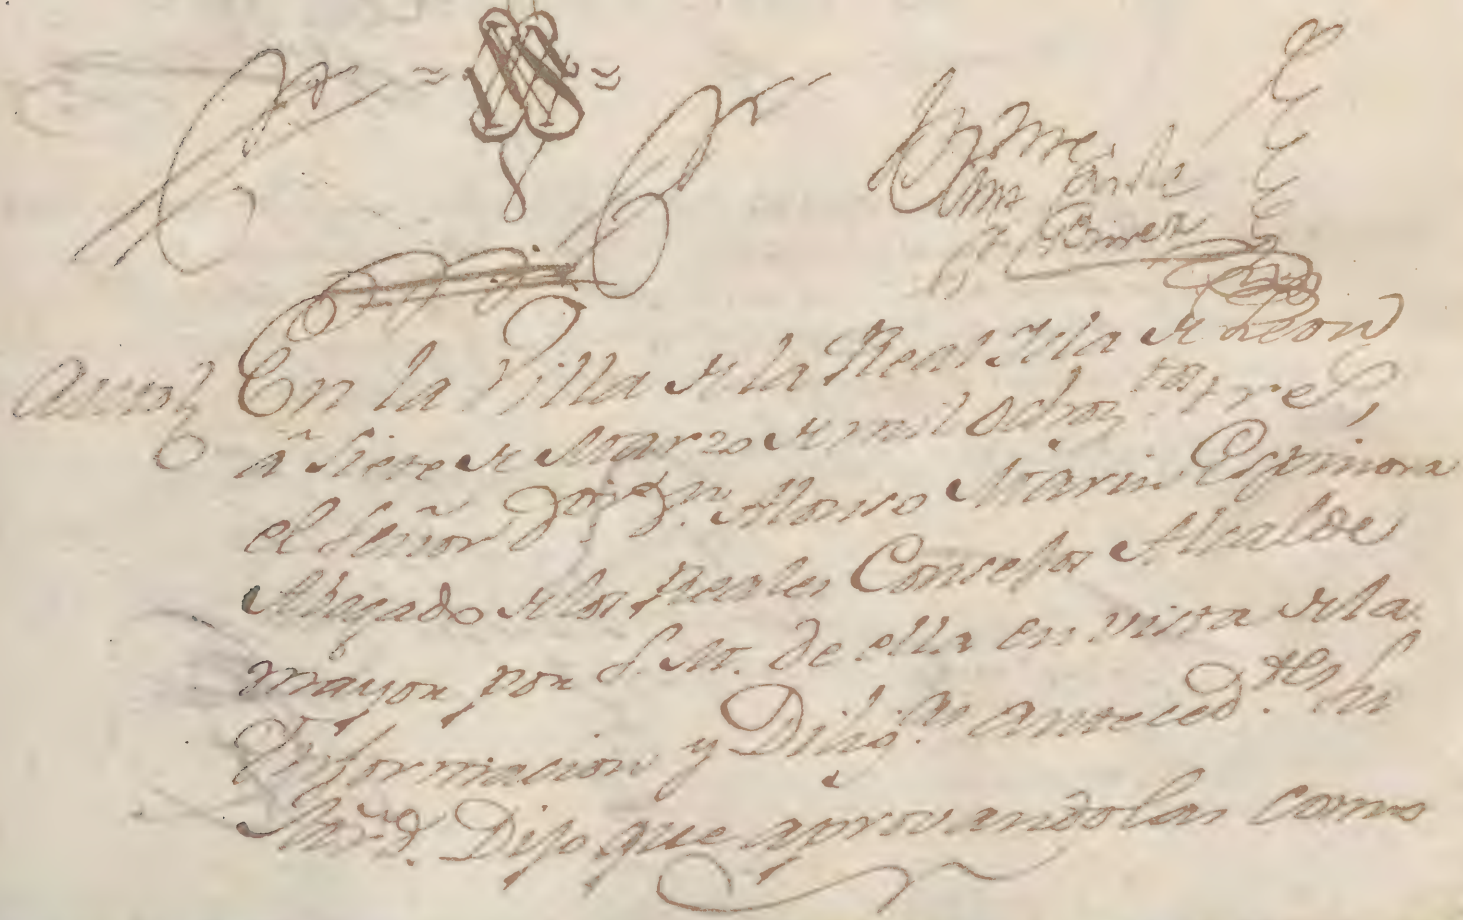 Auto
En la Villa de la Real Isla de Leon
a siete de Marzo de mil ochoz.tos tres,
el Señor D.or D.n Alonso Marin Espinosa
Abogado de los Reales Consejos Alcalde
mayor por S. M. de ella en vista de la
Informacion y Dilig.as anteced.tes su
Mrd. Dijo que aprovandolas como